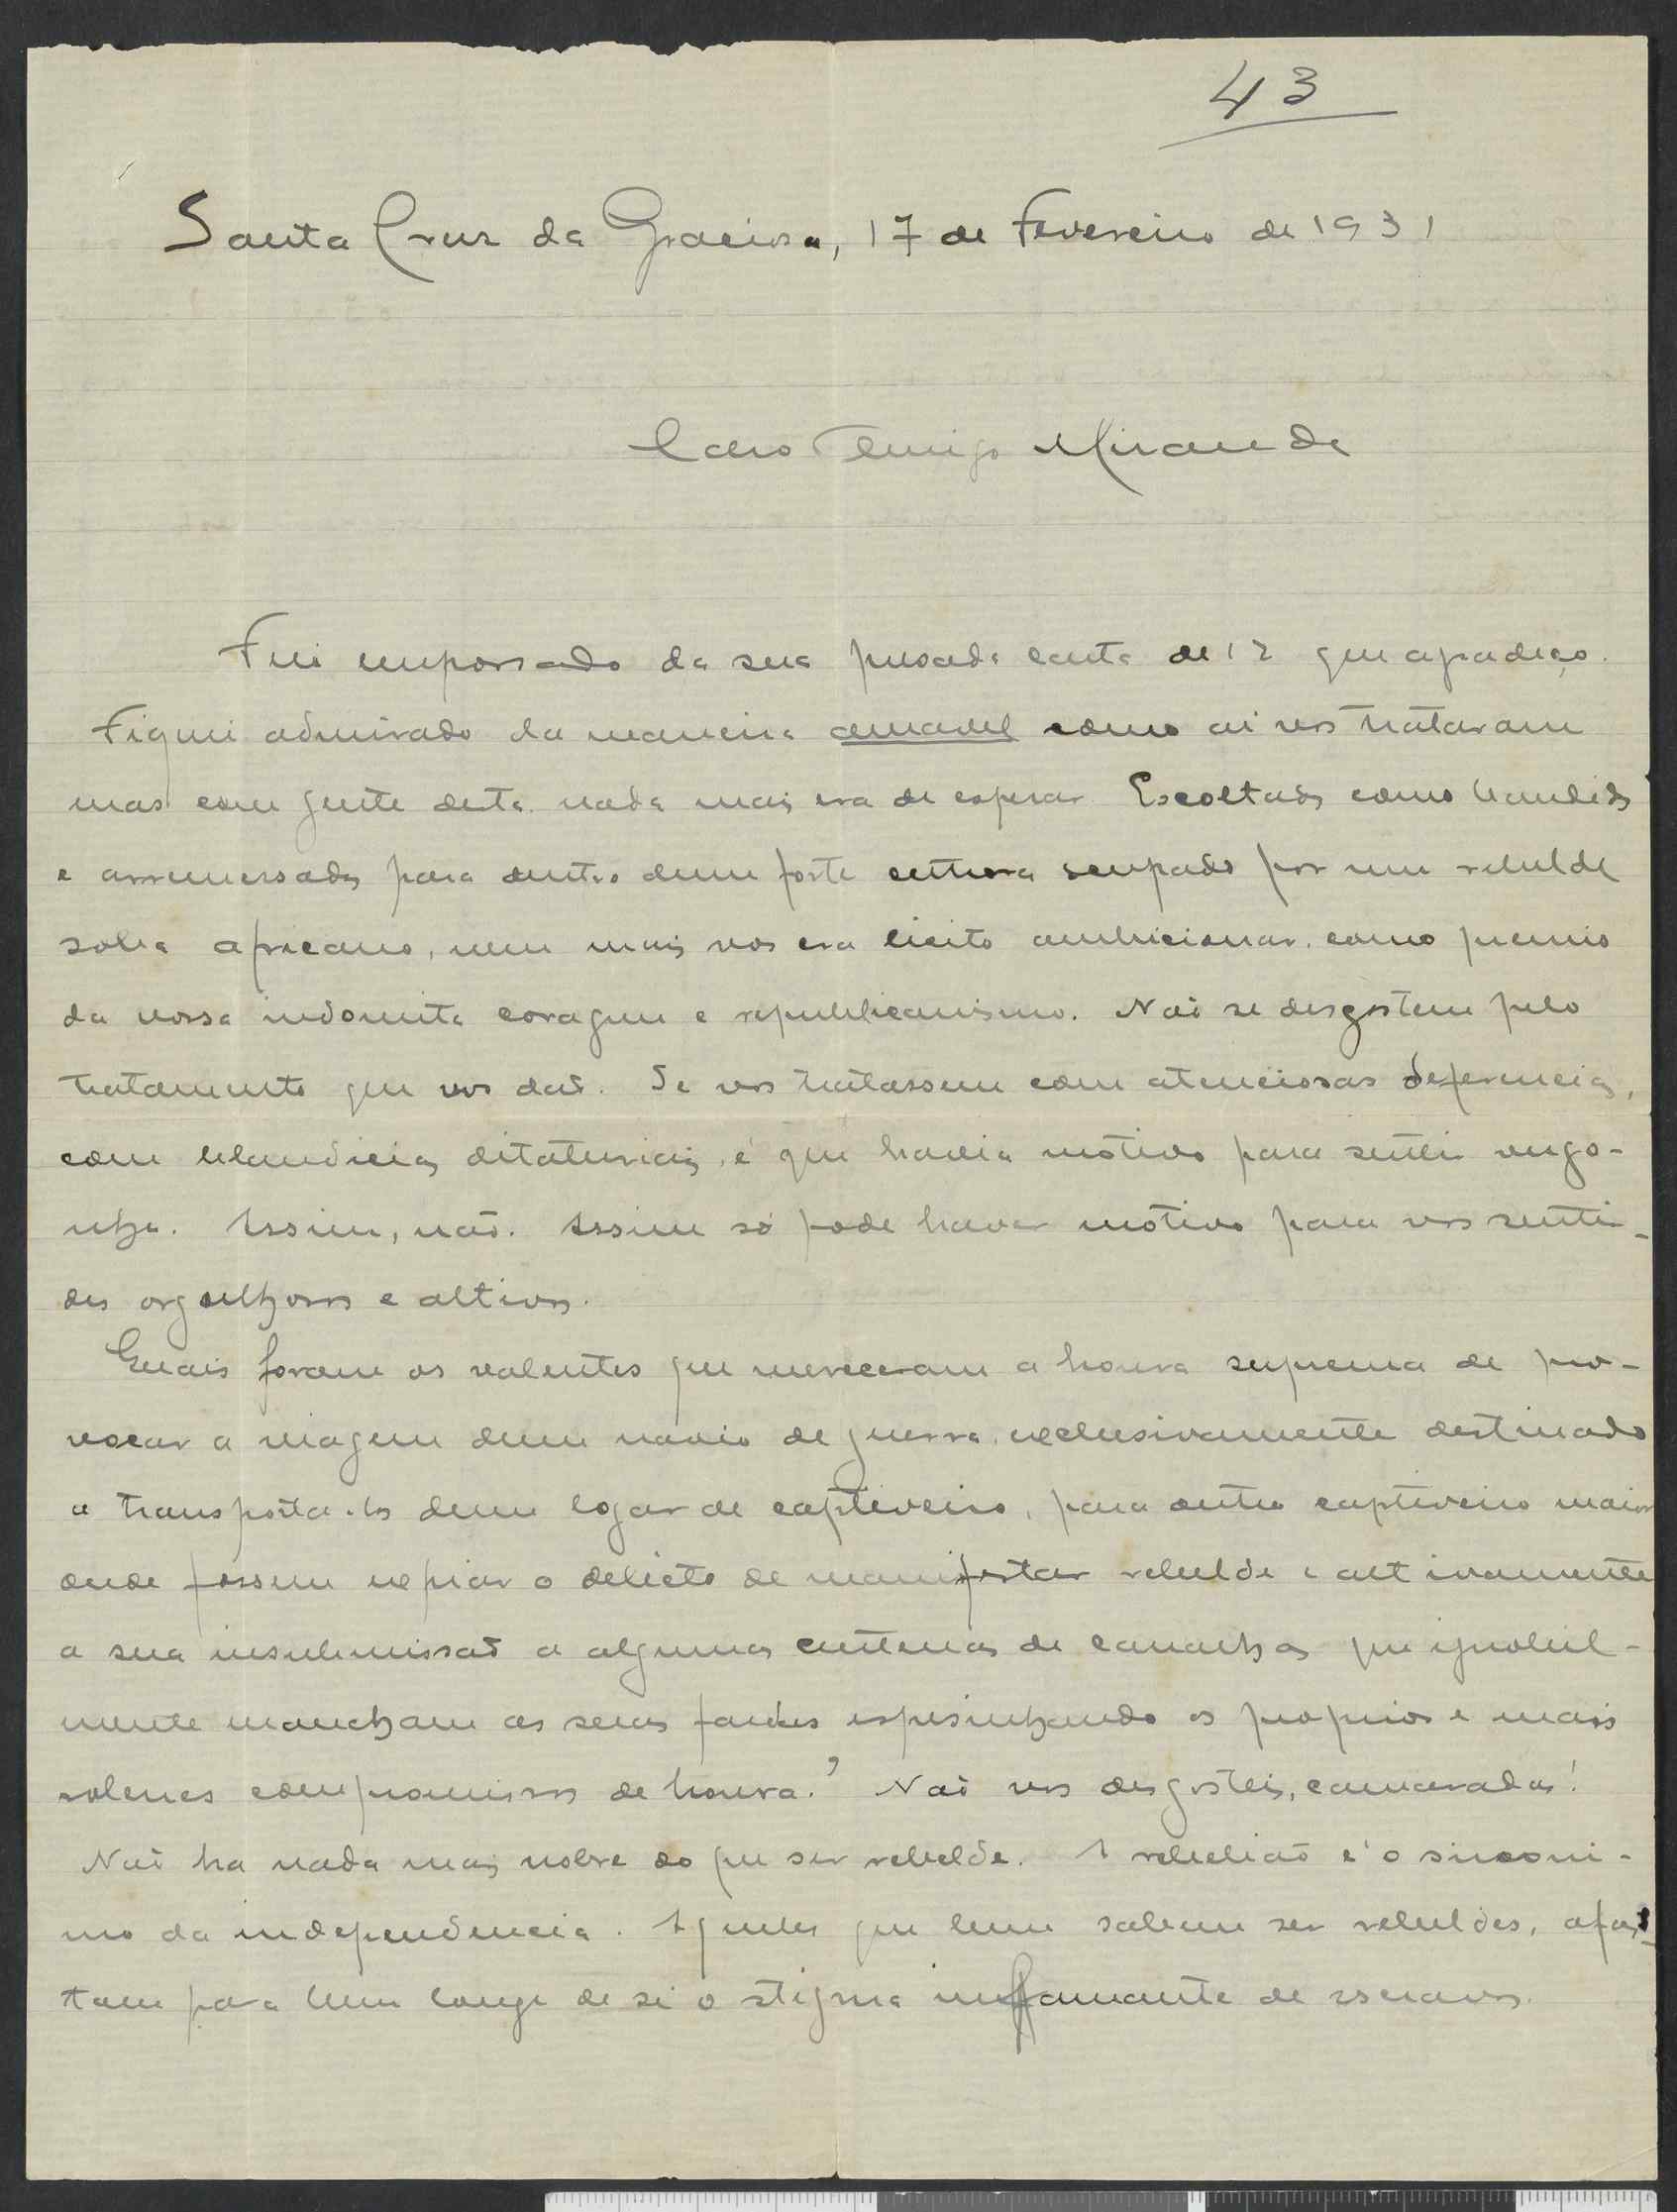 43
Santa Cruz da Graciosa, 17 de Fevereiro de 1931
Caro Amigo Miranda
Fui empossado da sua presada carta de 12 que agradeço.
Fiquei admirado da maneira amavel como ai vos trataram
mas com gente desta nada mais era de esperar. Escoltados como bandidos
e arremessados para dentro dum forte outrora ocupado por um rebelde
soba africano, nem mais vos era licito ambicionar, como premio
da vossa indomita coragem e republicanismo. Naõ se desgostem pelo
tratamento que vos daõ. Se vos tratassem com atenciosas deferencias,
com blandicias ditatoriais, é que havia motivo para sentir vergo-
nha. Assim, naõ. Assim só pode haver motivo para vos senti-
des orgulhosos e altivos.
Quais foram os valentes que mereceram a honra suprema de pro-
vocar a viagem dum navio de guerra, exclusivamente destinado
a transporta-los dum logar de captiveiro, para outro captiveiro maior
onde possam expiar o delicto de manifestar rebelde e altivamente
a sua insubmissaõ a algumas centenas de canalhas que ignobil-
mente mancham as seus fardas espesinhando os proprios e mais
solenes compromissos de honra? Naõ vos desgosteis, camaradas!
Naõ ha nada mais nobre do que ser rebelde. A rebeliaõ é o sinoni-
mo da independencia. Aqueles que bem sabem ser rebeldes, afas-
tam para bem longe de si o stigma infamante de escravos.